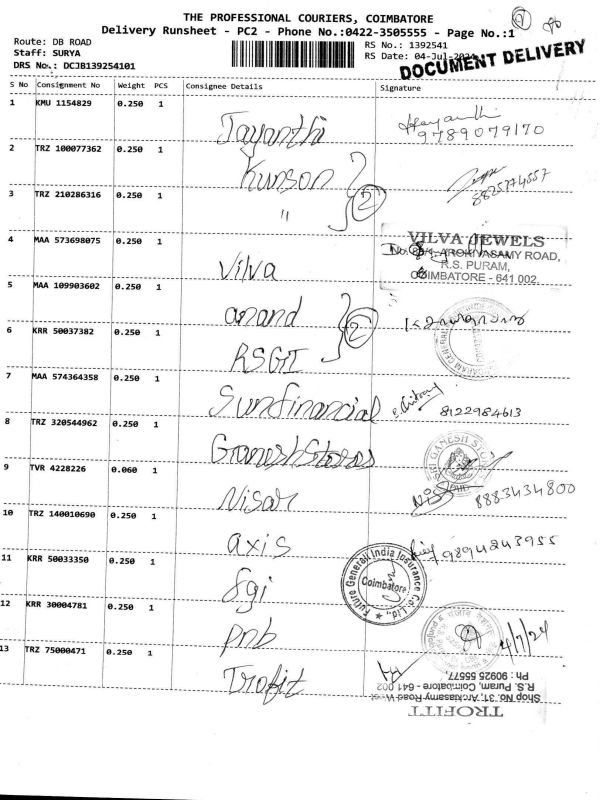 THE PROFESSIONAL COURIERS, COIMBATORE
Delivery Runsheet - PC2 - Phone No.:0422-3505555 - Page No.:1
2
Route: DB ROAD
Staff: SURYA
DRS No.: DCJB139254101
RS No.: 1392541
RS Date: 04-Jul-2024
DOCUMENT DELIVERY
S No Consignment No Weight PCS Consignee Details Signature
1 KMU 1154829 0.250 1 Jayanthi
9789079170
2 TRZ 100077362 0.250 1 Kunson
2
8825774557
3 TRZ 210286316 0.250 1 "
4 MAA 573698075 0.250 1 Vilva
VILVA JEWELS
AROKIYASAMY ROAD,
R.S. PURAM,
COIMBATORE - 641 002
5 MAA 109903602 0.250 1 anand
2
6 KRR 50037382 0.250 1 RSGI
7 MAA 574364358 0.250 1 Sunfinancial
8122984613
8 TRZ 320544962 0.250 1 Ganesh Stores
SRI GANESH STORES
9 TVR 4228226 0.060 1 Nisar
8883434800
10 TRZ 140010690 0.250 1 axis
9894243955
11 KRR 50033350 0.250 1 fgi
Future Generali India Insurance Co. Ltd.,
Coimbatore
12 KRR 30004781 0.250 1 pnb
4/7/24
13 TRZ 75000471 0.250 1 Trofit
TROFITT
Shop No. 31, Arokiasamy Road West
R.S. Puram, Coimbatore - 641 002
Ph : 90925 55577,